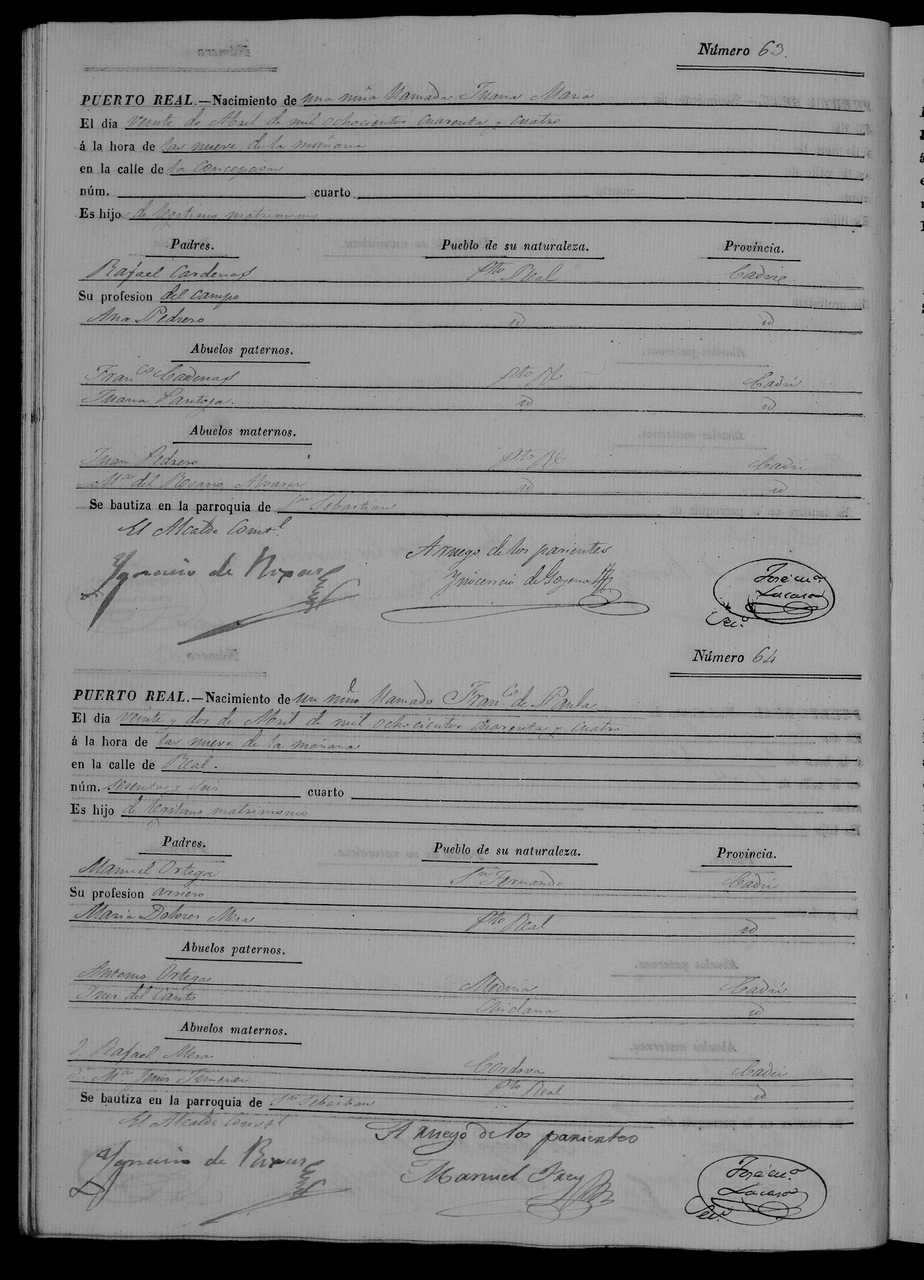 Número 63.
PUERTO REAL.—Nacimiento de una niña llamada Juana Maria
El dia veinte de Abril de mil ochocientos cuarenta y cuatro
á la hora de las nueve de la mañana
en la calle de la Concepcion
núm. cuarto
Es hijo de legitimo matrimonio
Padres. Pueblo de su naturaleza. Província.
Rafael Cardenas Pto Real Cadiz
Su profesion del campo
Ana Pedrero id id
Abuelos paternos.
Franco Cardenas Pto Rl Cadiz
Juana Pantoja. id id
Abuelos maternos.
Juan Pedrero Pto Rl Cadiz
Ma del Rosario Alvarez id id
Se bautiza en la parroquia de Sn Sebastian
El Alcalde Consl.
A ruego de los parientes
Ygnacio de
Ynocencio de Goyena
José ma Lucaso
Seco.
Número 64
PUERTO REAL.—Nacimiento de un niño llamado Franco de Paula
El dia veinte y dos de Abril de mil ochocientos cuarenta y cuatro
á la hora de las nueve de la mañana
en la calle de Real.
núm. sesenta y seis cuarto
Es hijo de lexitimo matrimonio
Padres. Pueblo de su naturaleza. Província.
Manuel Ortega Sn Fernando Cadiz
Su profesion arriero
Maria Dolores Mera Pto Real id
Abuelos paternos.
Antonio Ortega Medina Cadiz
Ines del Canto Chiclana id
Abuelos maternos.
D. Rafael Mera Cordova Cadiz
Da Ma Jimenez Pto Real id
Se bautiza en la parroquia de Sn Sebastian
El Alcalde Consl
A ruego de los parientes
Ygnacio de
Manuel Frey
José ma Lucaso
Seco.